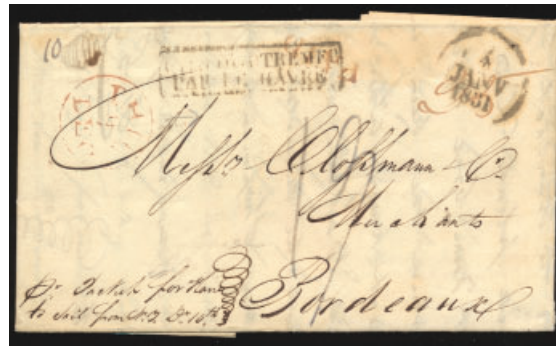 10
PAR LE HAVRE
4
JANV
1831
Messrs Clossmann & Co.
Merchants
Bordeaux
pr Packet for Havre
to sail from N.Y. Dr 10th